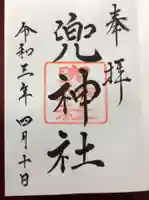 奉拝
兜神社
令和三年四月十日